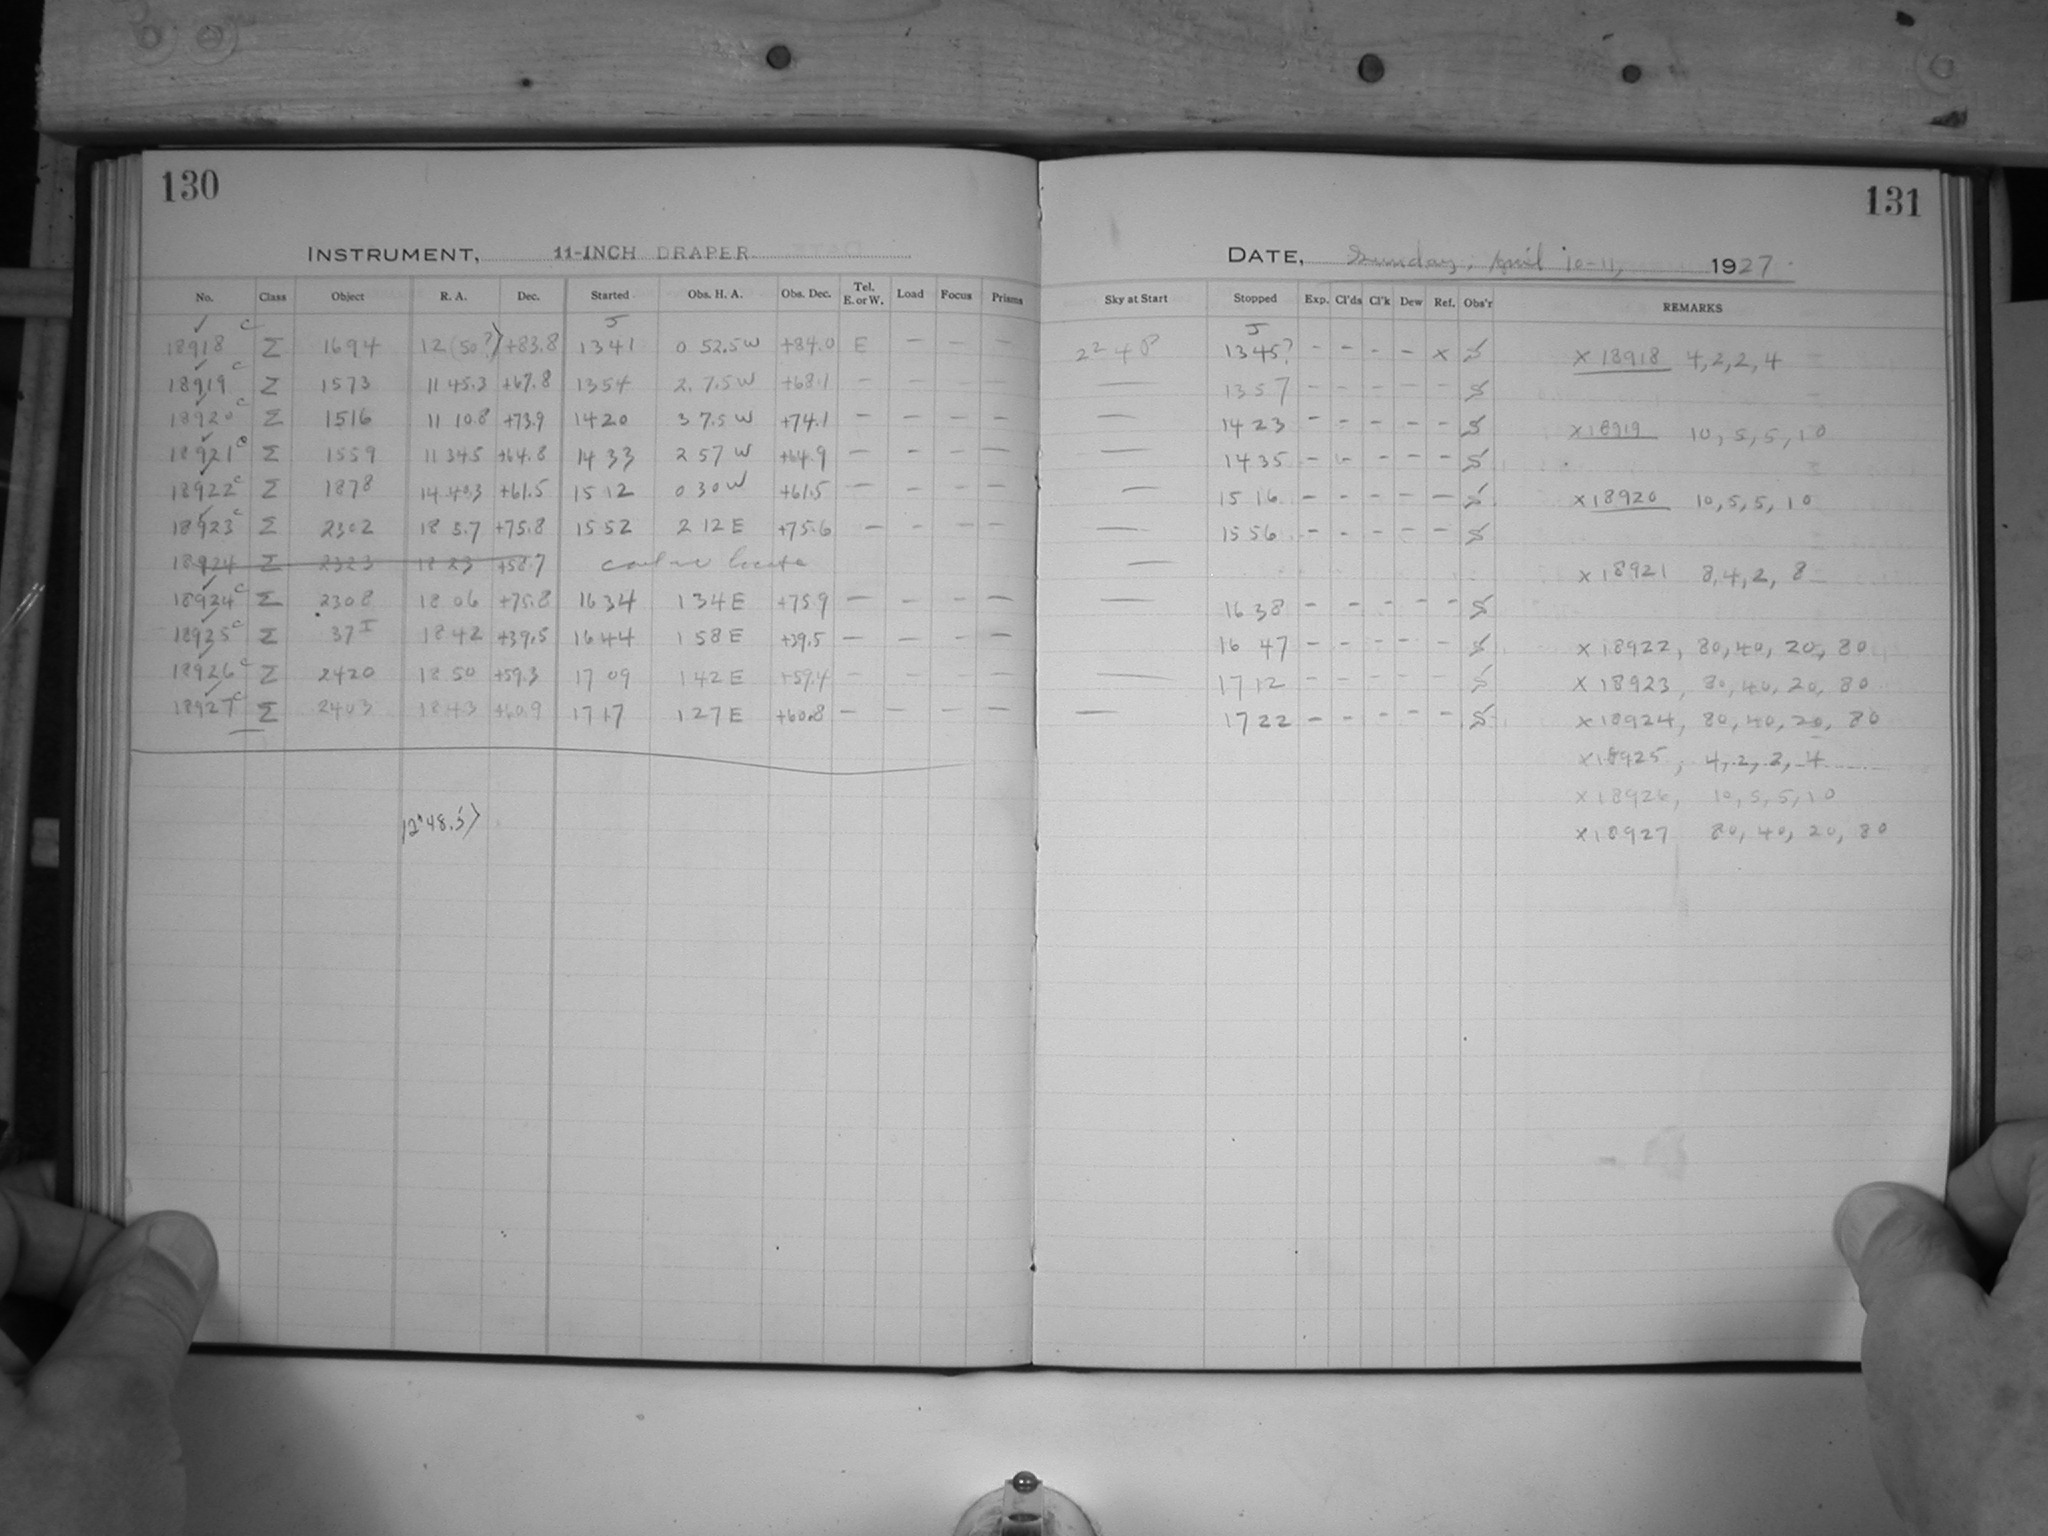 130
INSTRUMENT, 11-INCH DRAPER
No. Class Object R. A. Dec. Started Obs. H. A. Obs. Dec. Tel. E. or W. Load Focus Prisms
J
18918 c Σ 1694 12 (50?) +83.8 1341 0 52.5 W +84.0 E — — —
18919 c Σ 1573 11 45.3 +67.8 1354 2 7.5 W +68.1 — — — —
18920 c Σ 1516 11 10.8 +73.9 1420 3 7.5 W +74.1 — — — —
18921 c Σ 1559 11 34.5 +64.8 1433 2 57 W +64.9 — — — —
18922 c Σ 1878 14 40.3 +61.5 1512 0 30 W +61.5 — — — —
18923 c Σ 2302 18 3.7 +75.8 1552 2 12 E +75.6 — — — —
18924 Σ 2323 18 23 +58.7
18924 c Σ 2308 18 06 +75.8 1634 1 34 E +75.9 — — — —
18925 c Σ 37 I 18 42 +39.5 1644 1 58 E +39.5 — — — —
18926 c Σ 2420 18 50 +59.3 1709 1 42 E +59.4 — — — —
18927 c Σ 2403 18 43 +60.9 1717 1 27 E +60.8 — — — —
12 48.5)
131
DATE, Sunday, April 10-11, 1927.
Sky at Start Stopped Exp. Cl'ds Cl'k Dew Ref. Obs'r REMARKS
J
1345? - - - - x S x 18918 4, 2, 2, 4
— 1357 - - - - - S
— 1423 - - - - - S x 18919 10, 5, 5, 10
— 1435 - - - - - S
— 1516 - - - - - S x 18920 10, 5, 5, 10
— 1556 - - - - - S
— x 18921 8, 4, 2, 8
— 1638 - - - - - S
1647 - - - - - S x 18922, 80, 40, 20, 80
— 1712 - - - - - S x 18923, 80, 40, 20, 80
— 1722 - - - - - S x 18924, 80, 40, 20, 80
x 18925, 4, 2, 2, 4
x 18926, 10, 5, 5, 10
x 18927 80, 40, 20, 80